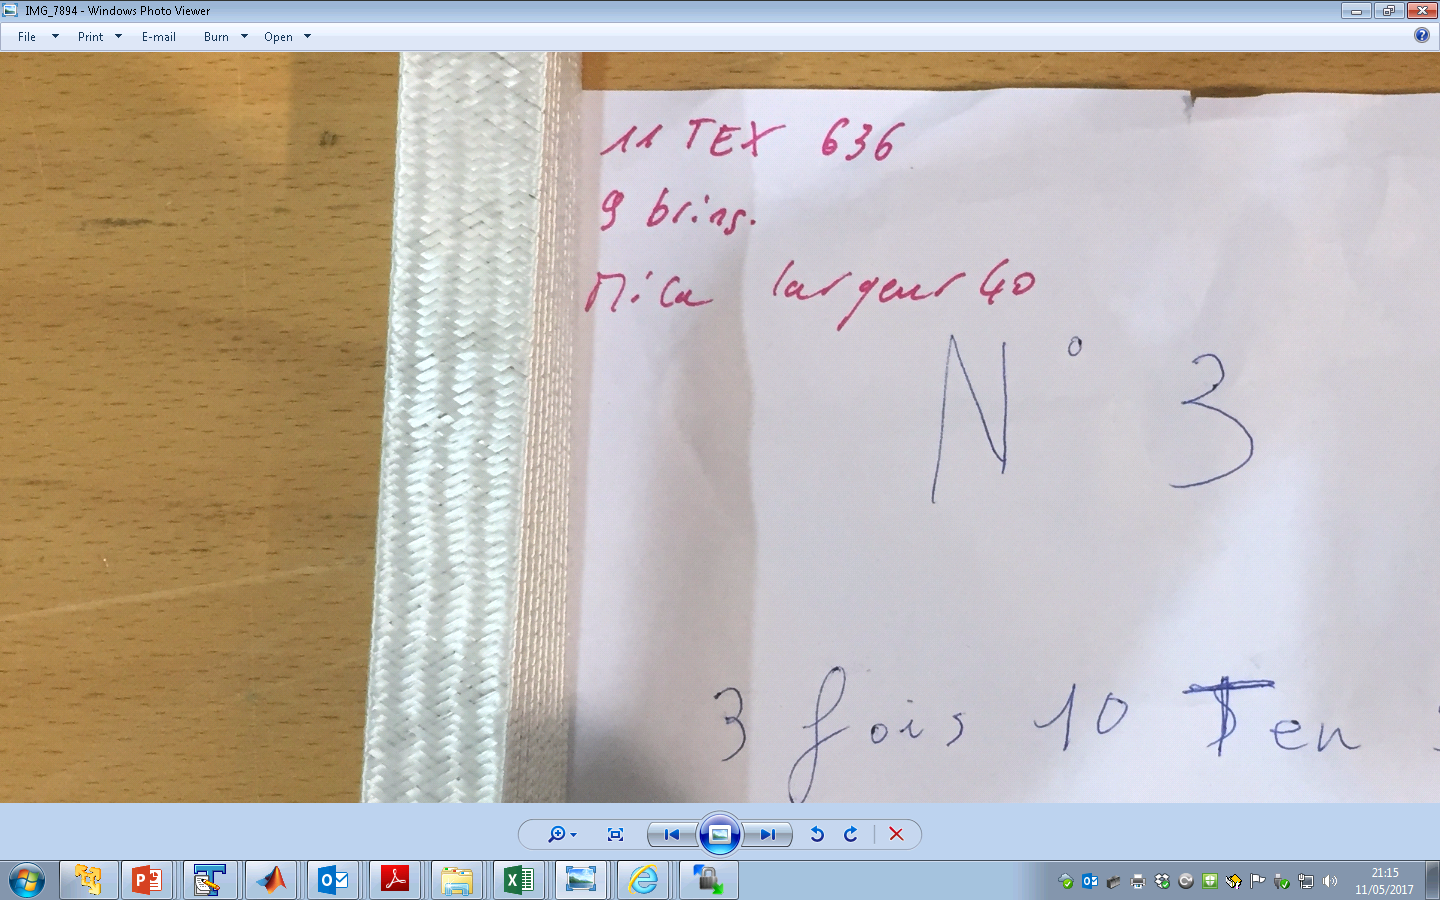 IMG_7894 - Windows Photo Viewer
File Print E-mail Burn Open
11 TEX 636
9 brins.
Mica largeur 40
N° 3
3 fois 10 T en
21:15
11/05/2017